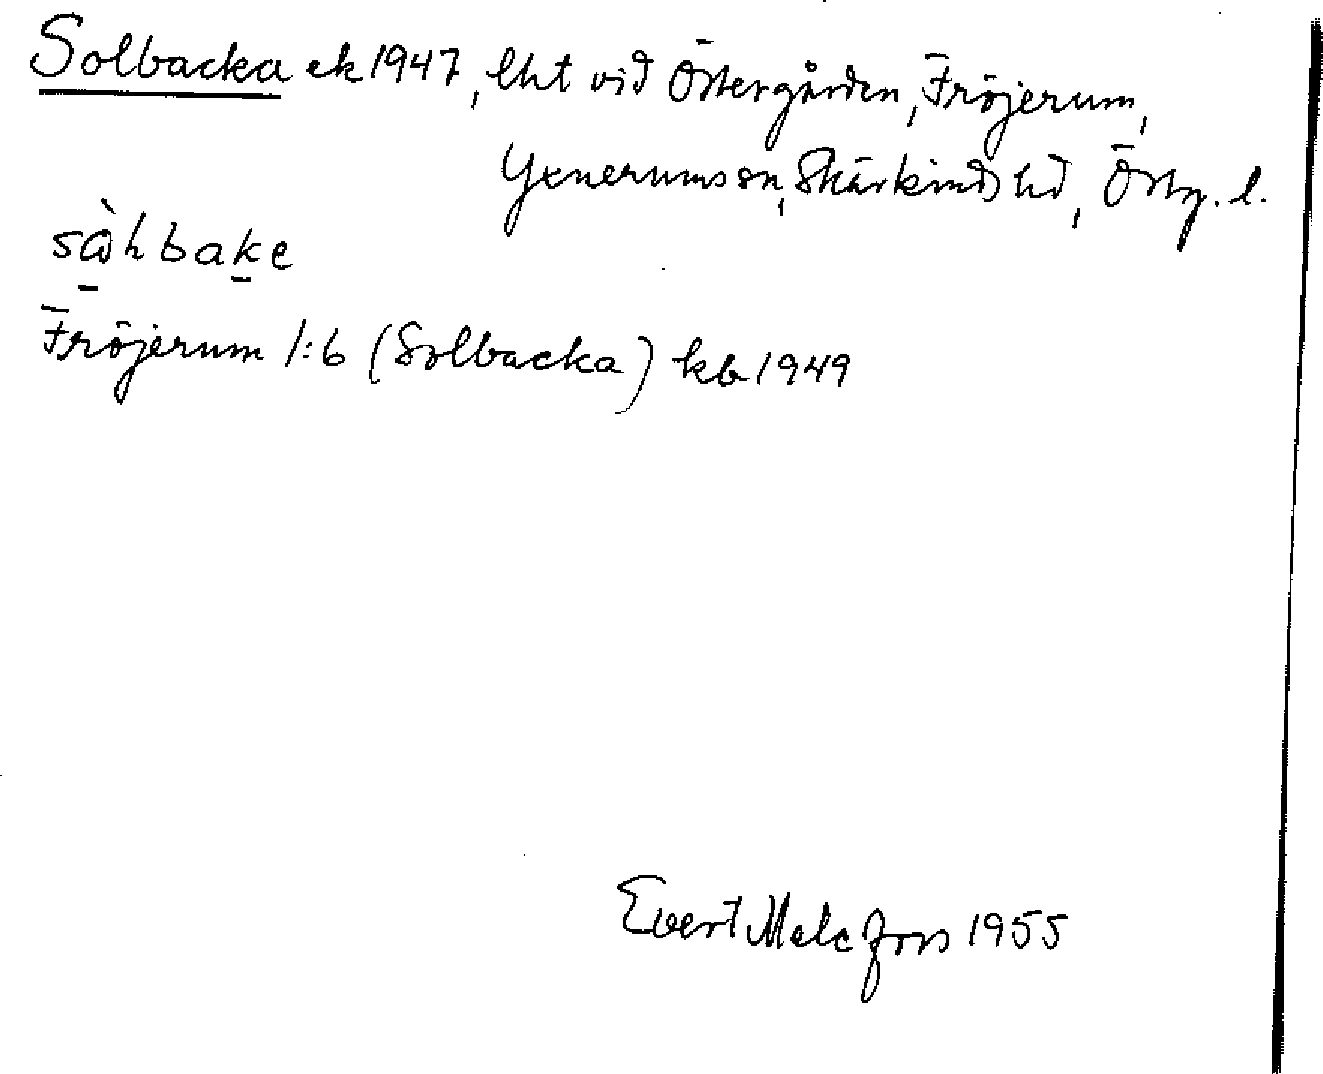 Solbacka ek 1947, lht vid Östergården, Fröjerum,
Yxnerums sn, Skärkinds hd, Östg. l.
Fröjerum 1:6 (Solbacka) kb 1949
Evert Melefors 1955